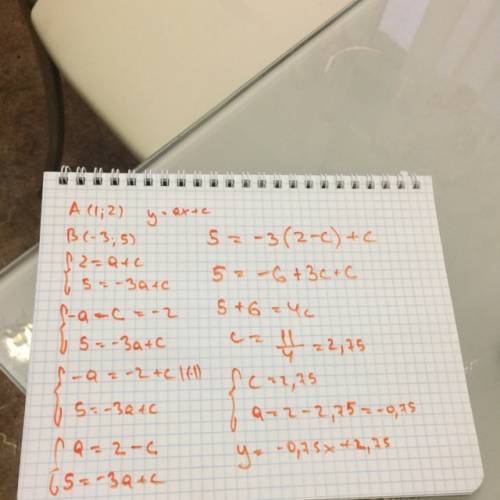 A (1; 2) y = ax + c
B (-3; 5)
{ 2 = a + c
5 = -3a + c
{ -a - c = -2
5 = -3a + c
{ -a = -2 + c |(-1)
5 = -3a + c
{ a = 2 - c
5 = -3a + c
5 = -3(2 - c) + c
5 = -6 + 3c + c
5 + 6 = 4c
c = 11/4 = 2,75
{ c = 2,75
a = 2 - 2,75 = -0,75
y = -0,75x + 2,75